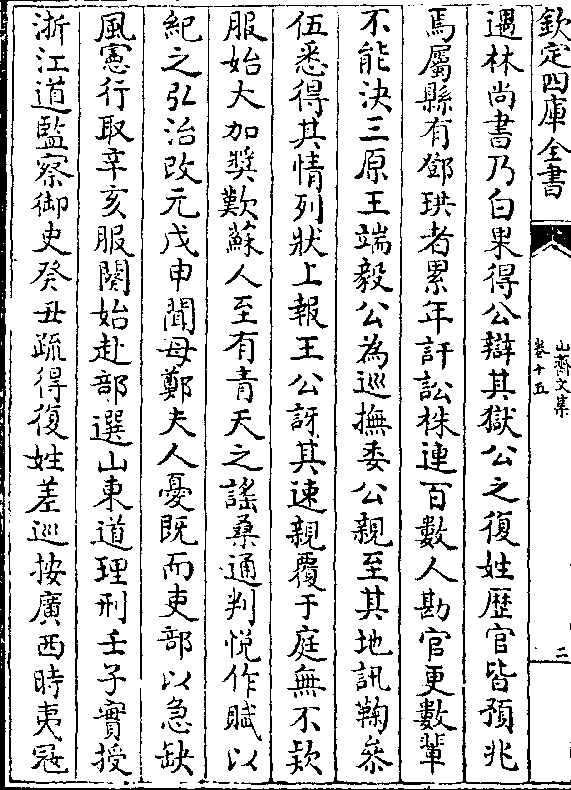 欽定四庫全書
山齋文集
卷十五
二
遇林尚書乃白果得公辯其獄公之復姓歴官皆預兆
焉屬縣有鄧珙者累年訐訟株連百數人勘官更數輩
不能決三原王端毅公為巡撫委公親至其地訊鞠叅
伍悉得其情列狀上報王公訝其速親覆于庭無不欵
服始大加奬歎蘇人至有青天之謠桑通判悅作賦以
紀之弘治改元戊申聞母鄭夫人憂既而吏部以急缺
風憲行取辛亥服闋始赴部選山東道理刑壬子實授
浙江道監察御史癸丑疏得復姓差巡按廣西時夷冦